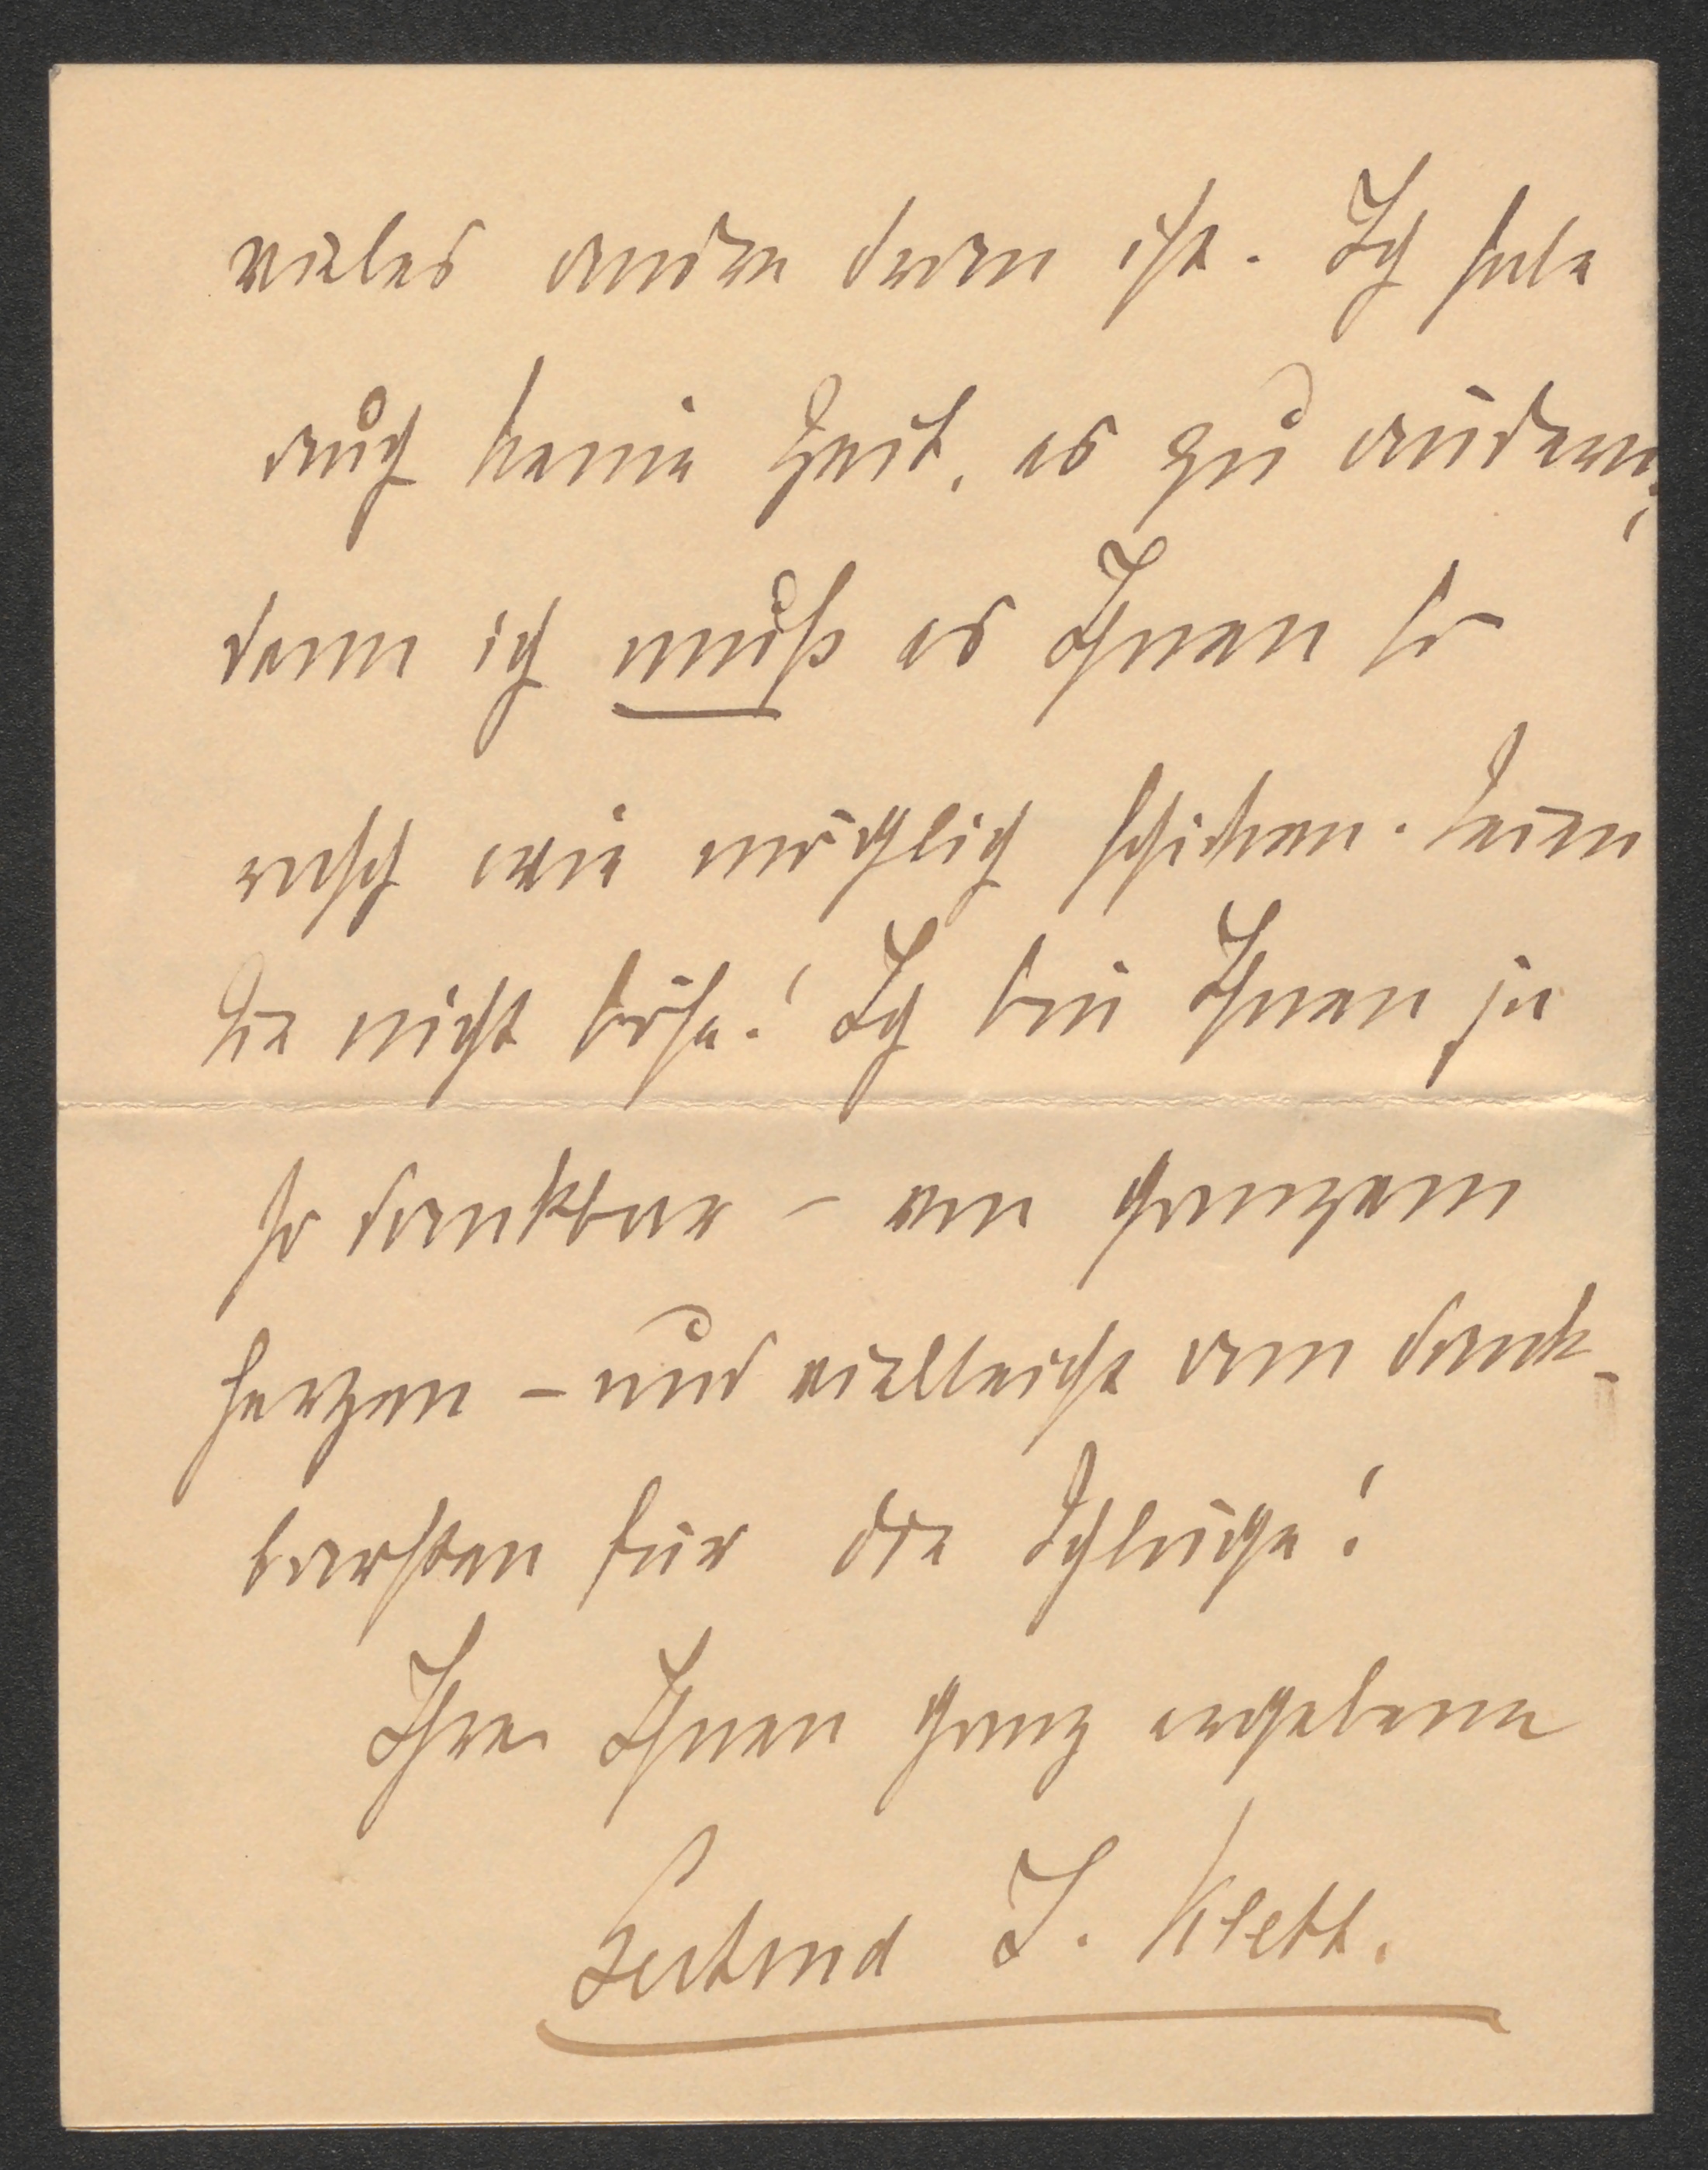 vieles andre daran ist. Ich habe
auch keine Zeit, es zu ändern;
denn ich muß es Ihnen so
rasch wie möglich schicken. Seien
Sie nicht böse! Ich bin Ihnen ja
so dankbar – von ganzem
Herzen – und vielleicht am dank-
barsten für die Schläge!
Ihre Ihnen ganz ergebene
Gertrud I. Klett.